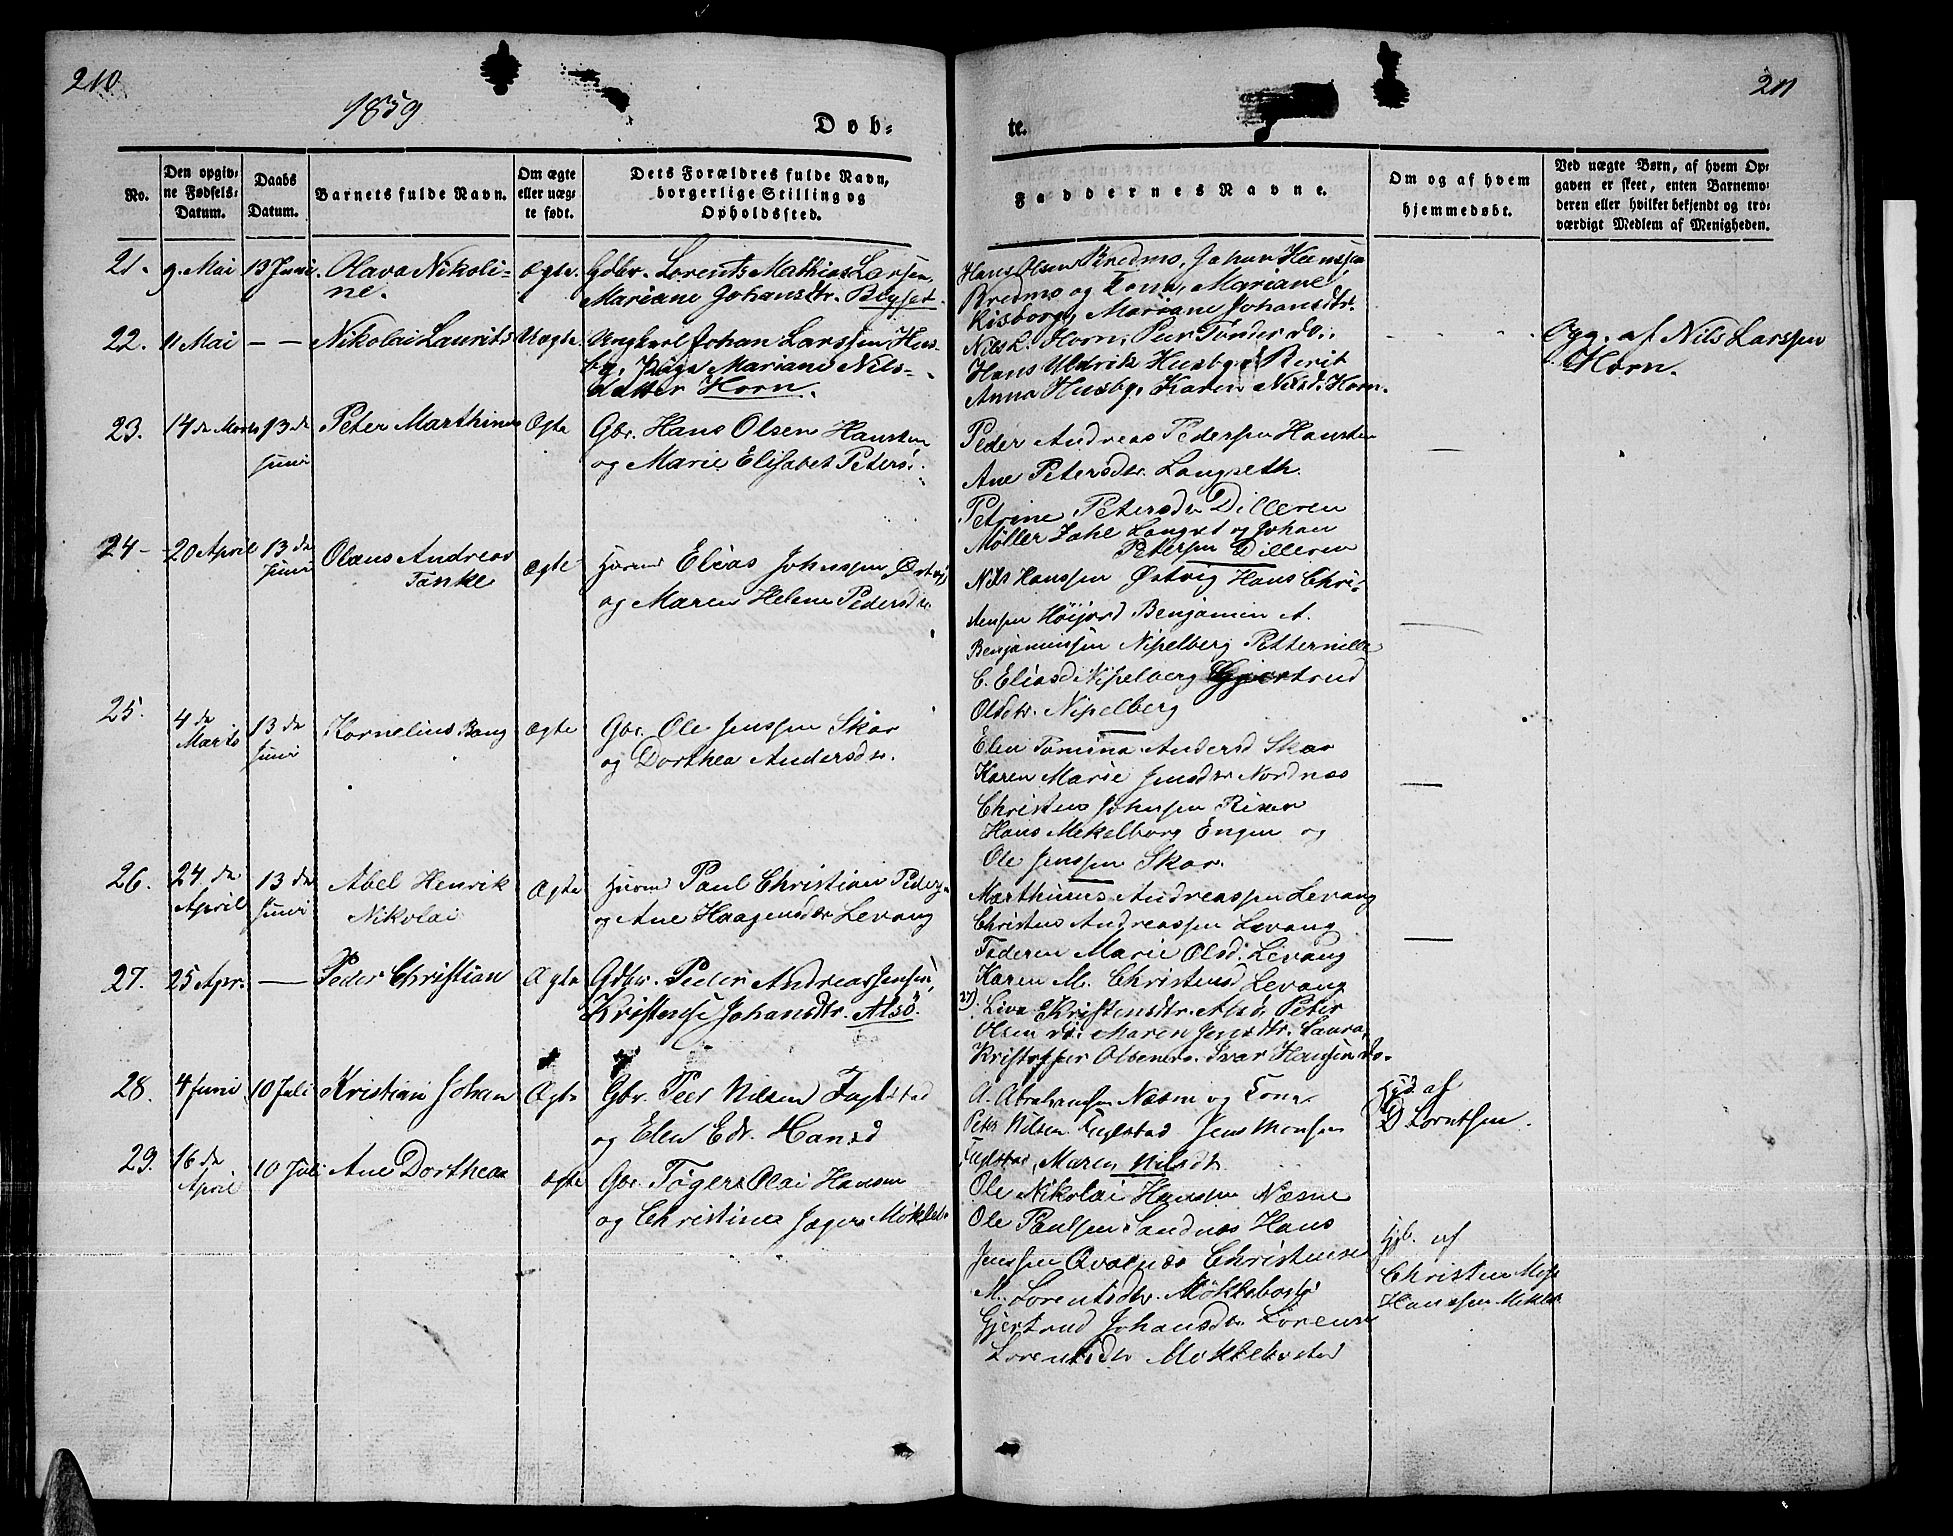 210
1859
Døb-
No.
Den opgiv-
ne Fødsels-
Datum.
Daabs
Datum.
Barnets fulde Navn.
Om ægte
eller uæg-
te født.
Dets Forældres fulde Navn,
borgerlige Stilling og
Opholdssted.
21. 9. Mai 13 Juni. Olava Nikoli-
ne.
Ægte. Gdbr. Lorents Mathias Larsen,
Mariane Johansdtr. Bigset
22. 11 Mai — — Nikolai Laurits Uægte. Ungkarl Johan Larssen Hus-
by, Pige Mariane Nils-
datter Horn.
23. 14 de Marts 13 de
Juni
Peter Marthinus Ægte Gbr. Hans Olsen Hansten
og Marie Elisabet Petersd.
24 - 20 April 13 de
Juni
Olaus Andreas
Tanke
Ægte Huusm Elias Johnssen Østvig
og Maren Helene Pedersdtr
25. 4 de
Marts
13 de
Juni
Kornelius Bang Ægte Gbr. Ole Jenssen Skar
og Dorthea Andersdtr.
26. 24 de
April
13 de
Juni
Abel Henrik
Nikolai
Ægte Huusm Paul Christian Peders.
og Ane Haagensdtr Levang
27. 25 Apr. — Peder Christian Ægte Gdbr. Peder Andreas Jensen,
Kristense Johansdtr. Alsø.
28. 4 Juni 10 Juli Kristian Johan Ægte Gbr. Peer Nilsen Fuglstad
og Elen Edv. Hansd
29. 16 de
April
10 Juli Ane Dorthea ægte Gbr. Tøger Olai Hansen
og Christine Jæger Møkleb.
211
te.
Faddernes Navne.
Om og af hvem
hjemmedøbt.
Ved uægte Børn, af hvem Op-
gaven er skeet, enten Barnemo-
deren eller hvilket bekjendt og tro-
værdigt Medlem af Menigheden.
Hans Olsen Bredmo, Johan Hanssen
Bredmo og Kona, Mariane
Risborg, Mariane Johansdtr.
Nils L. Horn, Peer Tønder do.
Hans Uldrik Husby, Berit
Anna Husby, Karen Nilsd. Horn.
Opg. af Nils Larssen
Horn.
Peder Andreas Pederssen Hansten
Ane Petersdtr. Langseth
Petrine Petersdtr Dilleren
Møller Zahl Langset og Johan
Peterssen Dilleren
Nils Hanssen Østvig Hans Chri-
stensen Høifjord Benjamin A.
Benjaminssen Nipelberg Petternille
C. Eliasd Nipelberg Gjertrud
Olsdtr. Nipelberg
Elen Tomina Andersd Skar
Karen Marie Jensdtr Nordnæs
Christens Johnssen
Hans Mekelborg Engen og
Ole Jenssen Skar.
Marthinus Andreassen Levang
Christens Andreassen Levang
Marie Olsd. Levang
Karen M. Christensd Levang
27). Liva Kristensdtr. Alsø, Peter
Olsen do. Maren Jensdtr. Laura,
Kristoffer Olsen do. Ivar Hansen do.
A. Abrahamsen Næsen og Kone
Peter Nilsen Fuglstad Jens Monsen
Fuglstad, Maren Nilsdtr.
af
D Lorntsen.
Ole Nikolai Hanssen Næsne
Ole Paulsen Sandnæs Hans
Jenssen Qvalnæs Christense
M. Lorentsdtr. Møklebostd
Gjertrud Johansdtr Lorense
Lorentsdtr Møklebostad
Hjb. af
Christen
Hanssen